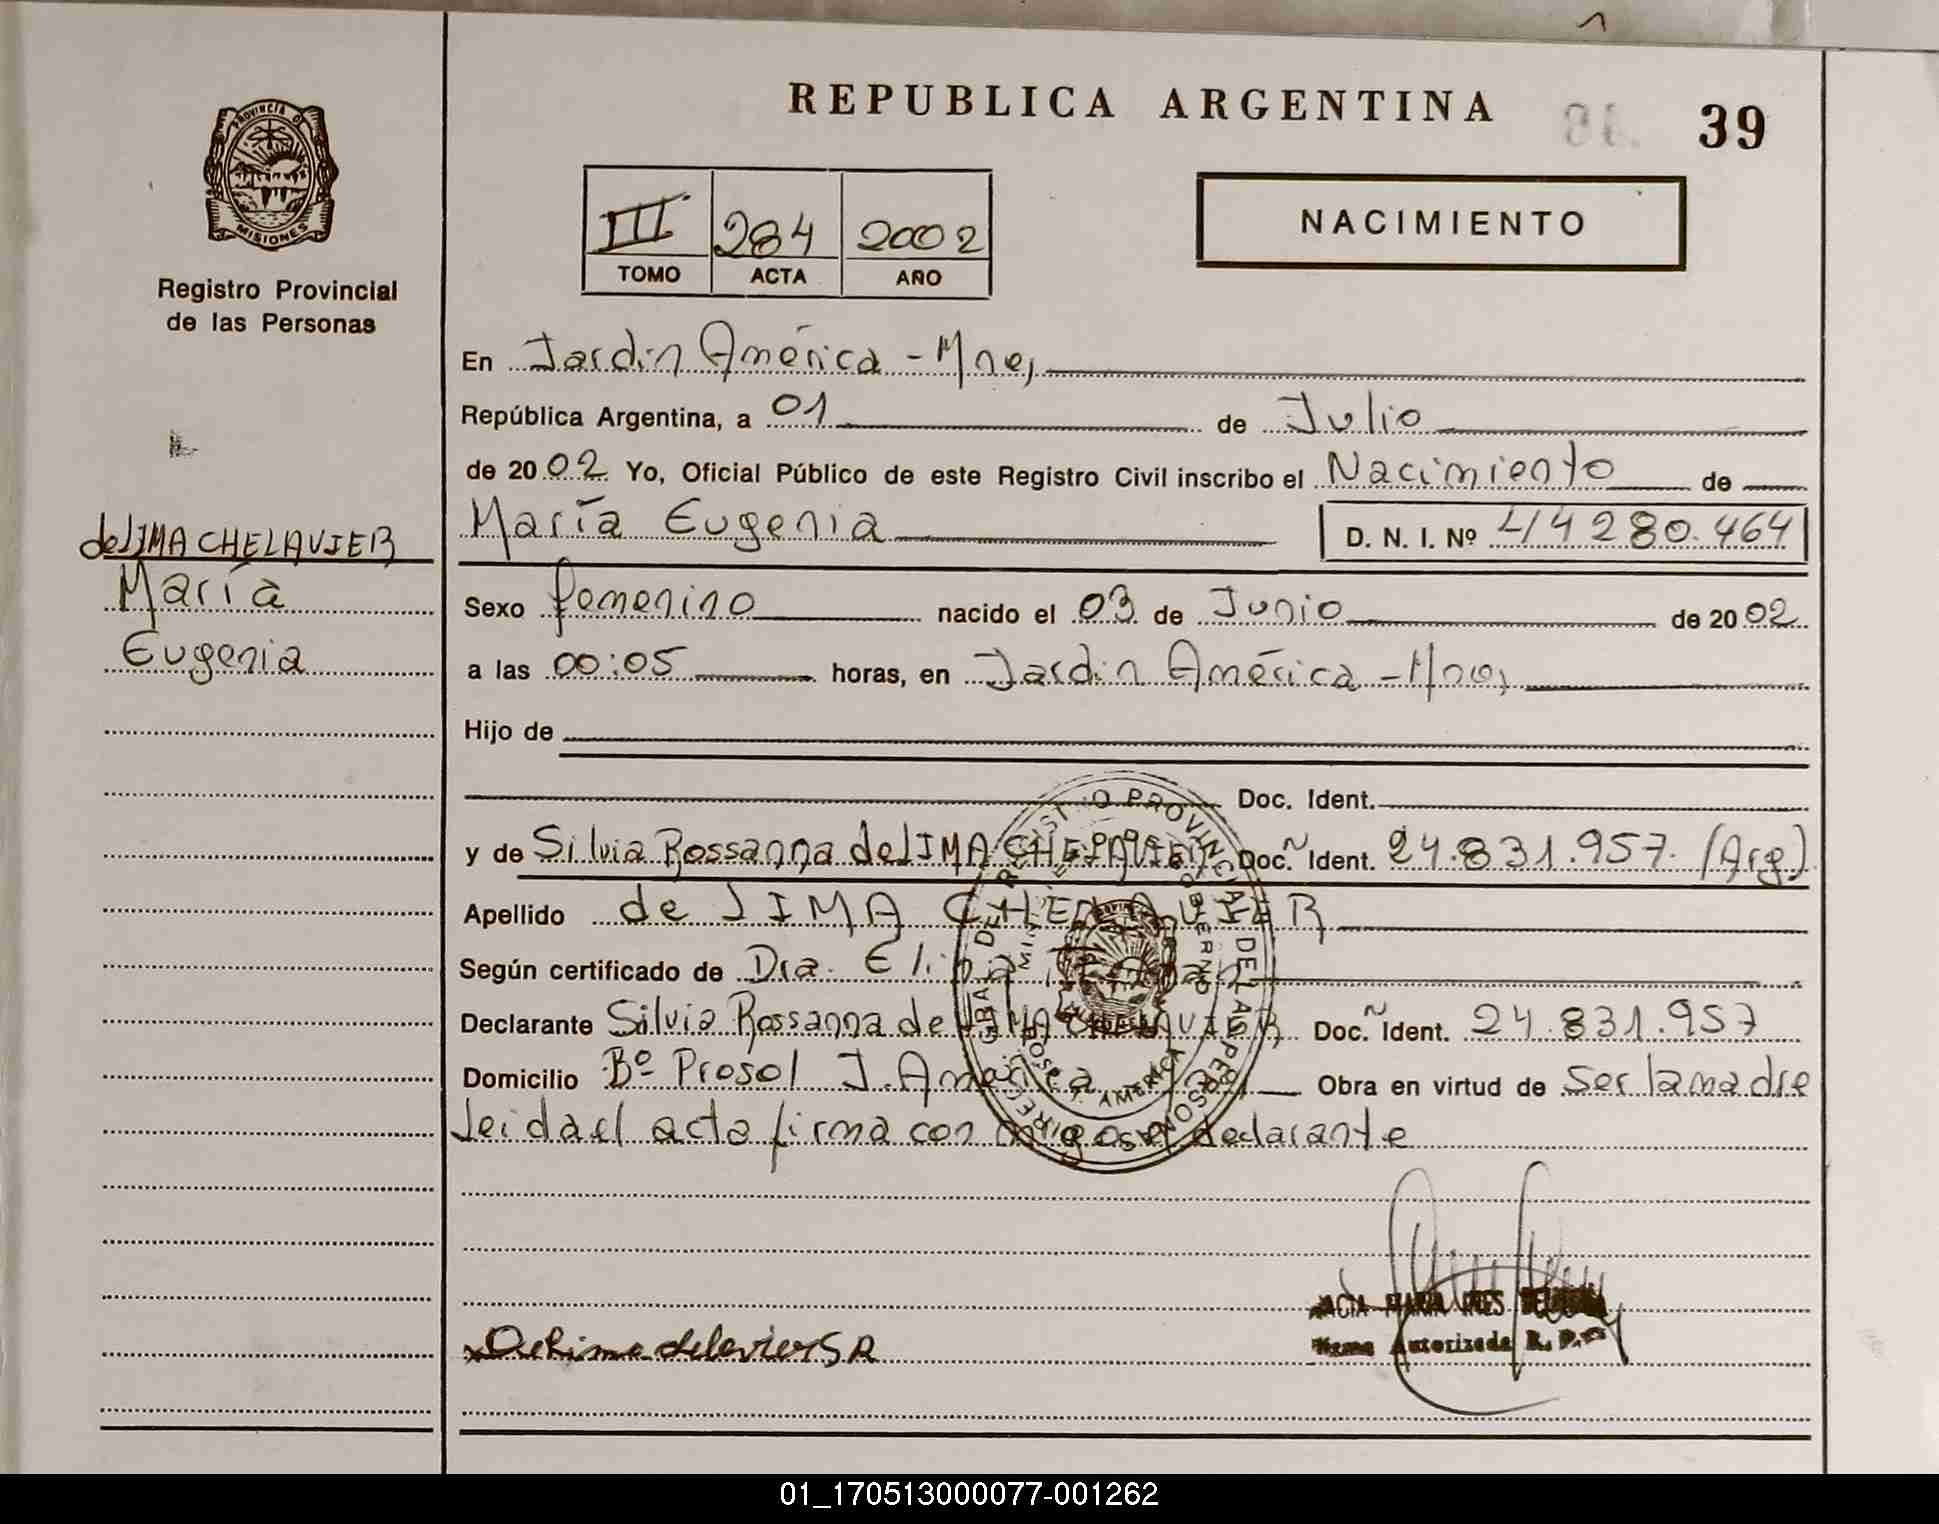 REPUBLICA ARGENTINA
39
PROVINCIA DE
MISIONES
Registro Provincial
de las Personas
III 284 2002
TOMO ACTA AÑO
NACIMIENTO
En Jardin América - Mnes,
República Argentina, a 01 de Julio
de 20 02 Yo, Oficial Público de este Registro Civil inscribo el Nacimiento de
María Eugenia D. N. I. Nº 44280.464
de LIMA CHELAVIER
María
Eugenia
Sexo femenino nacido el 03 de Junio de 20 02
a las 00:05 horas, en Jardin América - Mnes,
Hijo de
Doc. Ident.
y de Silvia Rossanna de LIMA CHELAVIER Doc. Ident. 24.831.957. (Arg)
Apellido de LIMA CHELAVIER
Según certificado de Dra.
Declarante Silvia Rossanna de LIMA CHELAVIER Doc. Ident. 24.831.957
Domicilio Bº Prosol J. América Obra en virtud de Ser la madre
Leida el acta firma con migo el declarante
REGISTRO PROVINCIAL DE LAS PERSONAS
ACTA MARIA INES
Firma Autorizada R. P.
De Lima Chelavier S R
01_170513000077-001262